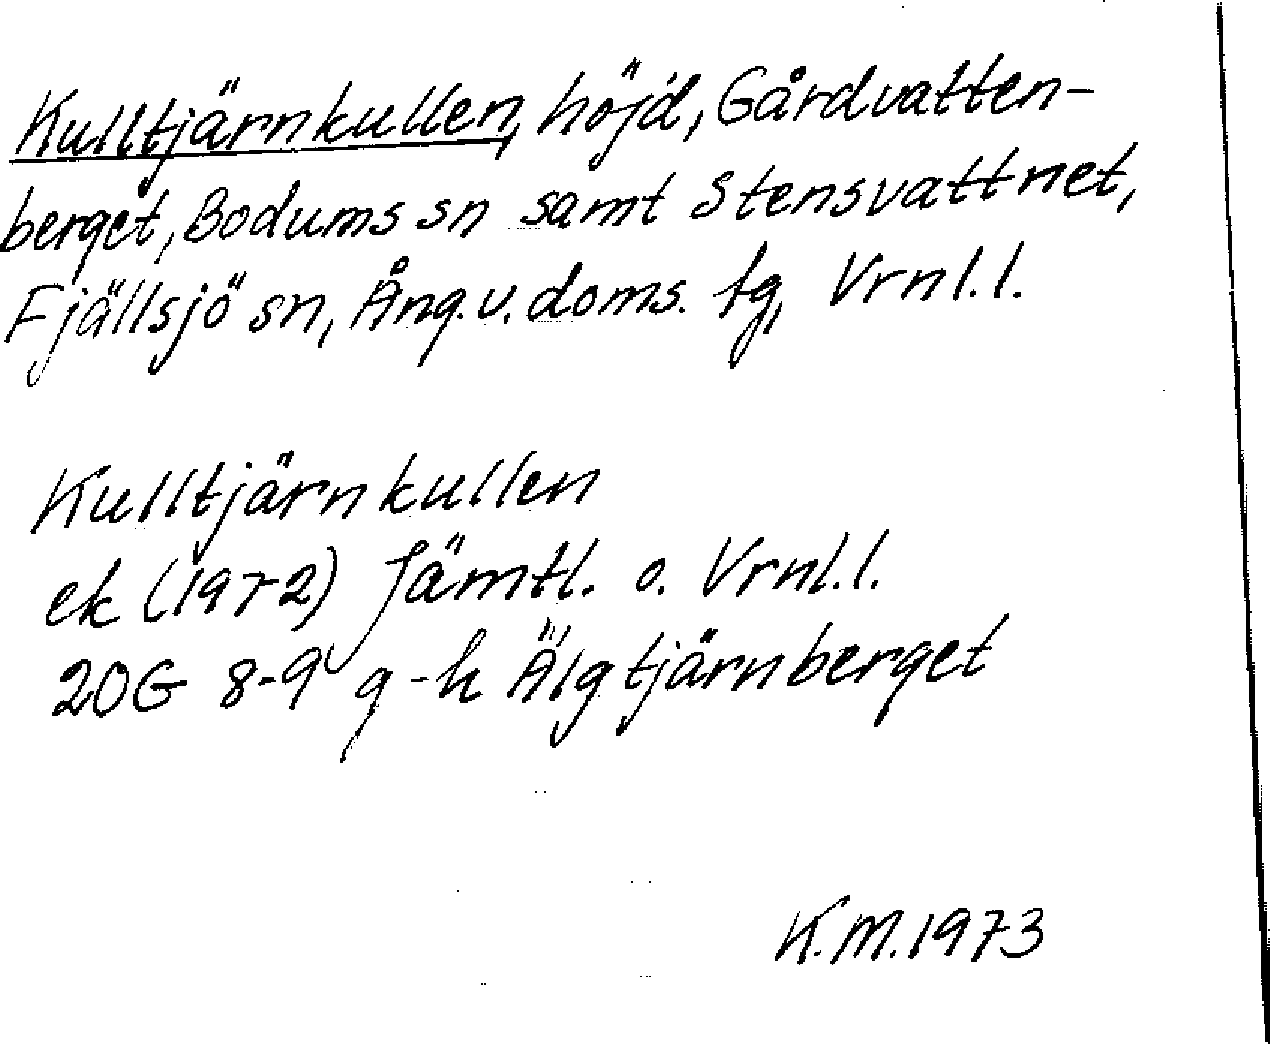 Kulltjärnkullen, höjd, Gårdvatten-
berget, Bodums sn samt Stensvattnet,
Fjällsjö sn, Ång.v.doms. tg, Vrnl.l.
Kulltjärnkullen
ek (1972) Jämtl. o. Vrnl.l.
20G 8-9 g-h Älgtjärnberget
K.M.1973